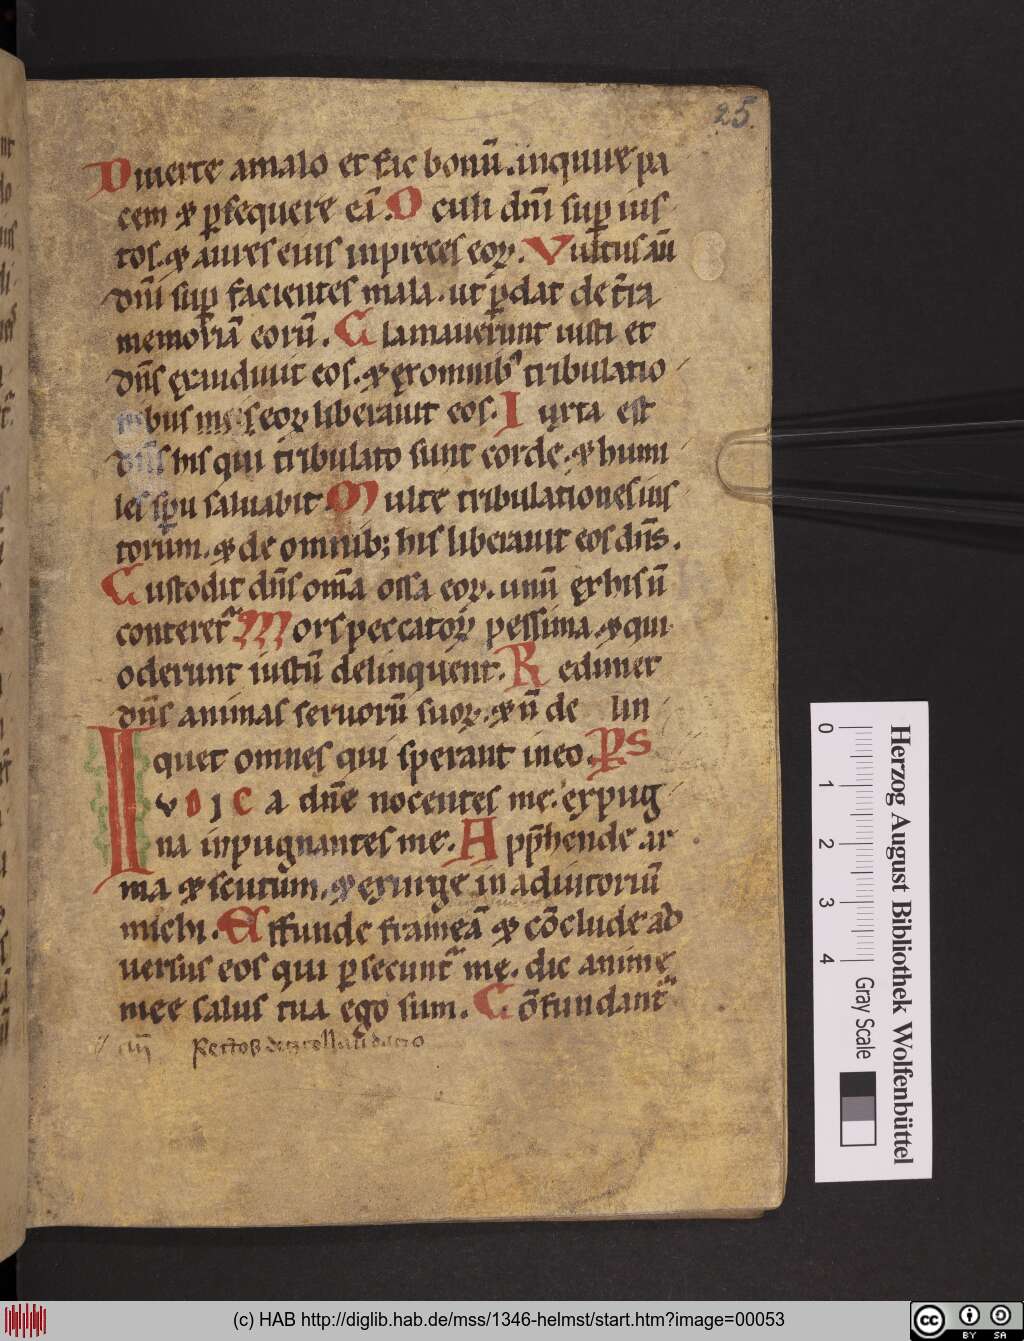 25
Diuerte amalo et fac bonū. inquire pa
cem ⁊ ꝑsequere eā. Oculi dn̄i sup̱ ius
tos. ⁊ aures eius inpreces eoꝝ. Vultus aū
dn̄i sup̱ facientes mala. ut ꝑdat de t̄ra
memoriā eorū. Clamauerunt iusti et
dn̄s exaudiuit eos. ⁊ ęxomnib' tribulatio
bus eoꝝ liberauit eos. Iuxta est
dn̄s his qui tribulato sunt corde. ⁊ humi
les sp̄u saluabit. Multe tribulationes ius
torum. ⁊ de omnib; his liberauit eos dn̄s.
Custodit dn̄s om̄a ossa eoꝝ. unū ęxhis n̄
conteret᷑. Mors peccatoꝝ pessima. ⁊ qui
oderunt iustū delinquent. Redimet
dn̄s animas seruorū suoꝝ. ⁊ n̄ de lin
quet omnes qui sperant ineo. Ps
Iudica dn̄e nocentes me. expug
na inpugnantes me. App̄hende ar
ma ⁊ scutum. ⁊ exurge in adiutoriū
michi. Effunde frameā ⁊ cōclude ad
uersus eos qui ꝑsecunt᷑ me. dic anime
mee salus tua ego sum. Cōfundant᷑
Herzog August Bibliothek Wolfenbüttel
0 1 2 3 4 Gray Scale
(c) HAB http://diglib.hab.de/mss/1346-helmst/start.htm?image=00053
cc BY SA